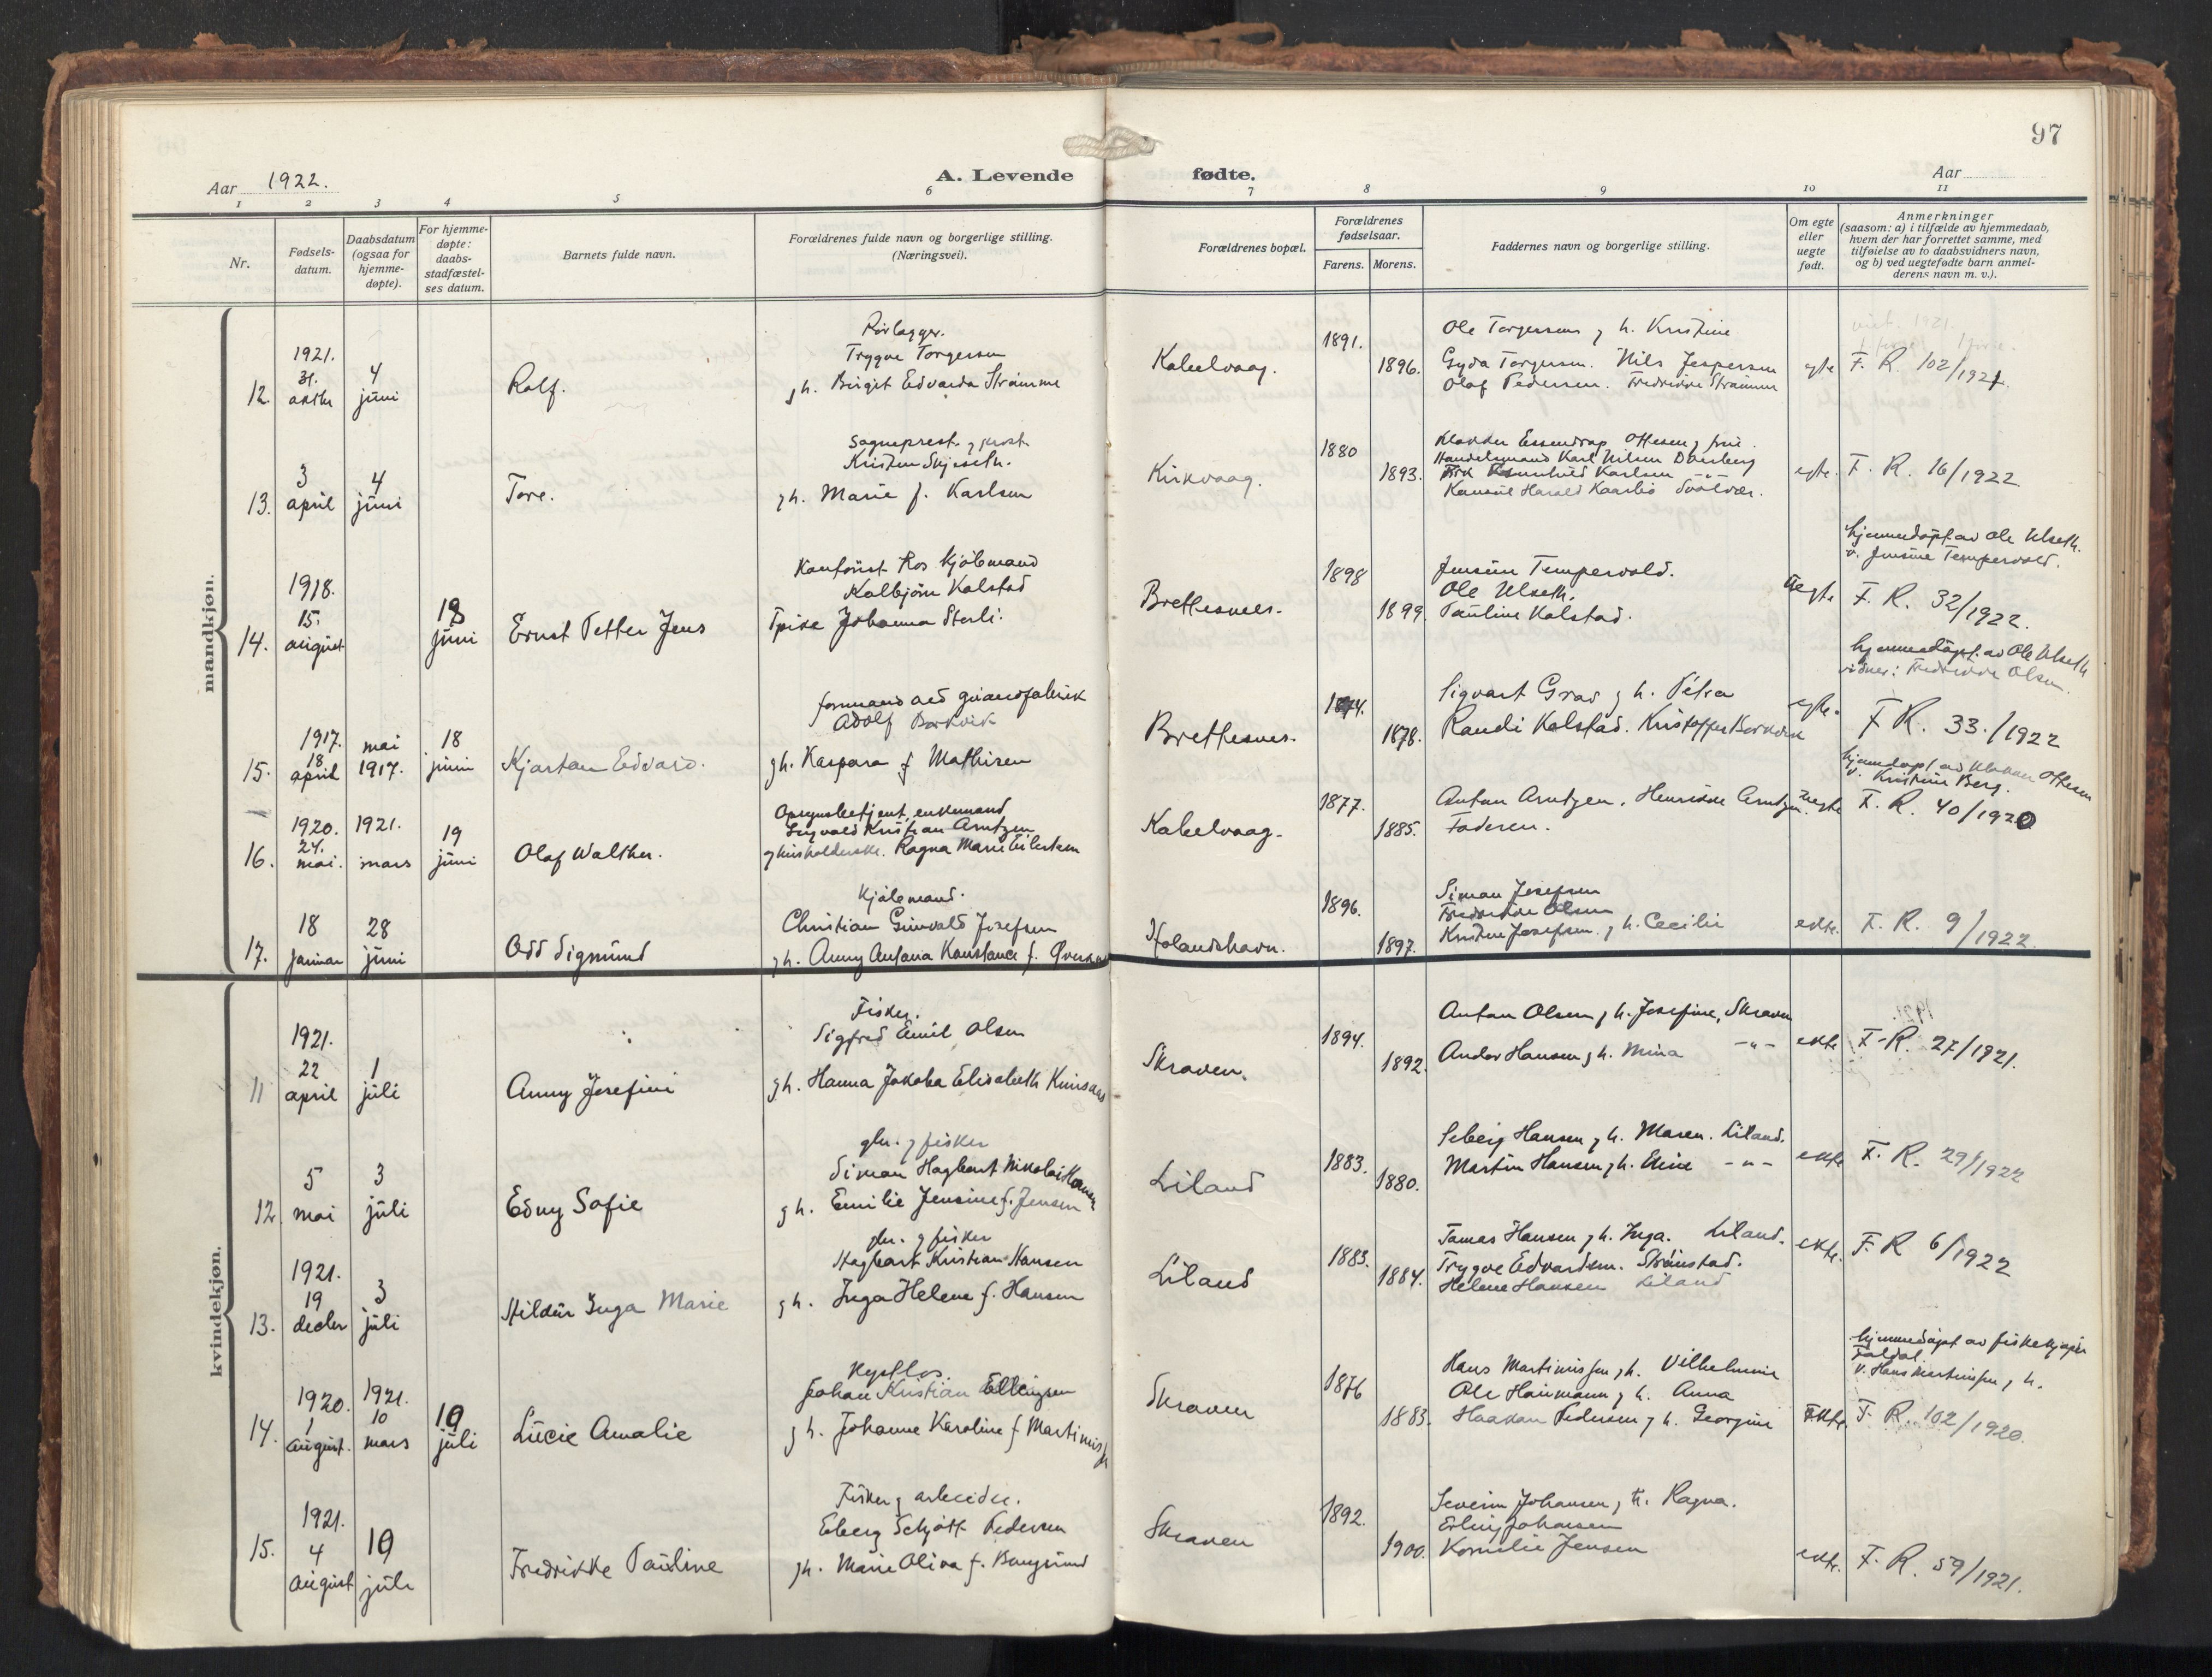 97
Aar 1922.
A. Levende fødte.
Aar
1 2 3 4 5 6 7 8 9 10 11
Nr.
Fødsels-
datum.
Daabsdatum
(ogsaa for
hjemme-
døpte).
For hjemme-
døpte:
daabs-
stadfæstel-
ses datum.
Barnets fulde navn.
Forældrenes fulde navn og borgerlige stilling.
(Næringsvei).
Forældrenes bopæl.
Forældrenes
fødselsaar.
Farens. Morens.
Faddernes navn og borgerlige stilling.
Om egte
eller
uegte
født.
Anmerkninger
(saasom: a) i tilfælde av hjemmedaab,
hvem der har forrettet samme, med
tilføielse av to daabsvidners navn,
og b) ved uegtefødte barn anmel-
derens navn m. v.).
mandkjøn.
12.
1921.
31.
oktbr
4
juni
Rolf.
Rørlægger.
Trygve Torgersen
g h. Birgit Edvarda Strømme
Kabelvaag.
1891.
1896.
Ole Torgersen g h. Kristine
Gyda Torgersen. Nils Jespersen
Olaf Pedersen. Fredrikke Strømme
egte
F. R. 102/1921.
13.
3
april
4
juni
Tore.
Sogneprest g prost
Kristen Skjeseth.
g h. Marie f. Karlsen
Kirkvaag.
1880
1893.
Klokker Essendrop Ottesen g frue.
Handelsmand Karl Nilsen
Karlsen
Konsul Harald Kaarbø Svolvær.
egte.
F. R. 16/1922
14.
1918.
15.
august
18
juni
Ernst Petter Jens
Kontorist hos kjøbmand
Kolbjørn Kolstad
Pike Johanna Sterli.
Brettesnes.
1898
1899.
Jensine Tempervold.
Ole Ulseth.
Pauline Kolstad.
uegte
hjemmedøpt av Ole Ulseth.
v. Jensine Tempervold.
F. R. 32/1922.
15.
1917.
18
april
mai
1917.
18
juni
Kjartan Edvard.
formand ved guanofabrik
Adolf Borkvik
g h. Kaspara f Mathisen
Brettesnes.
1874.
1878.
Sigvart Grav g h. Petra
Randi Kolstad. Kristoffer Borkvik
egte.
hjemmedøpt av Ole Ulseth
vidner: Fredrikke Olsen.
F R. 33./1922
16.
1920.
24.
mai.
1921.
mars
19
juni
Olaf Walther.
Opsynsbetjent, enkemand
Sigvald Kristian Arntzen
g husholderske. Ragna Marie Eilertsen
Kabelvaag.
1877.
1885.
Anton Arntzen. Henrikke Arntzen.
Faderen.
uegte
hjemdøpt av klokker Ottesen
v. Kristine Berg.
F. R. 40/1920
17.
18
januar
28
juni
Odd Sigmund
Kjøbmand.
Christian Grinvald Josefsen
g h. Anny Antona Konstance f.
Holandshavn.
1896.
1897.
Simon Josefsen
Fredrikke Olsen
Kristen Josefsen. g h. Cecilie
ekte.
F. R. 9/1922.
kvindekjøn.
11
1921.
22
april
1
juli
Anny Josefine
Fisker.
Sigfred Emil Olsen
g h. Hanna Jakoba Elisabeth
Skraaven.
1894.
1892.
Anton Olsen g h. Josefine, Skraaven
Andor Hansen g h. Mina -"-
ekte
F. R. 27/1921.
12.
5
mai
3
juli
Edny Sofie
gbr. g fisker
Simon Hagbart Nikolai Hansen
g h. Emilie Jensine f. Jensen
Liland
1883.
1880.
Seberg Hansen g h. Maren. Liland.
Martin Hansen g h. Eline -"-
ekte
F. R. 29/1922
13.
1921.
19
decbr
3
juli
Hildur Inga Marie
gbr. g fisker
Hagbart Kristian Hansen
g h. Inga Helene f. Hansen
Liland
1883.
1884.
Tomas Hansen g h. Inga. Liland.
Trygve Edvardsen. Strømstad.
Helene Hansen Liland
ekte.
F. R 6/1922
14.
1920.
1
august.
1921.
10
mars
10
juli
Lucie Amalie
Kystlos.
Johan Kristian Ellingsen
g h. Johanne Karoline f Martinussen
Skraaven
1876
1883.
Hans Martinussen g h. Vilhelmine
Ole Haumann g h. Anna
Haakon Pedersen g h. Georgine
Ekte.
hjemmedøpt av fiskekjøper
Toldal
v. Hans Martinsen g h.
F. R. 102/1920.
15.
1921.
4
august
10
juli
Fredrikke Pauline
Fisker g arbeider.
Eberg Schjøtt Pedersen
g h. Marie Oliva f.
Skraaven
1892.
1900.
Severin Johansen g h. Ragna.
Erling Johansen
Kornelie Jensen
ekte.
F. R. 59/1921.